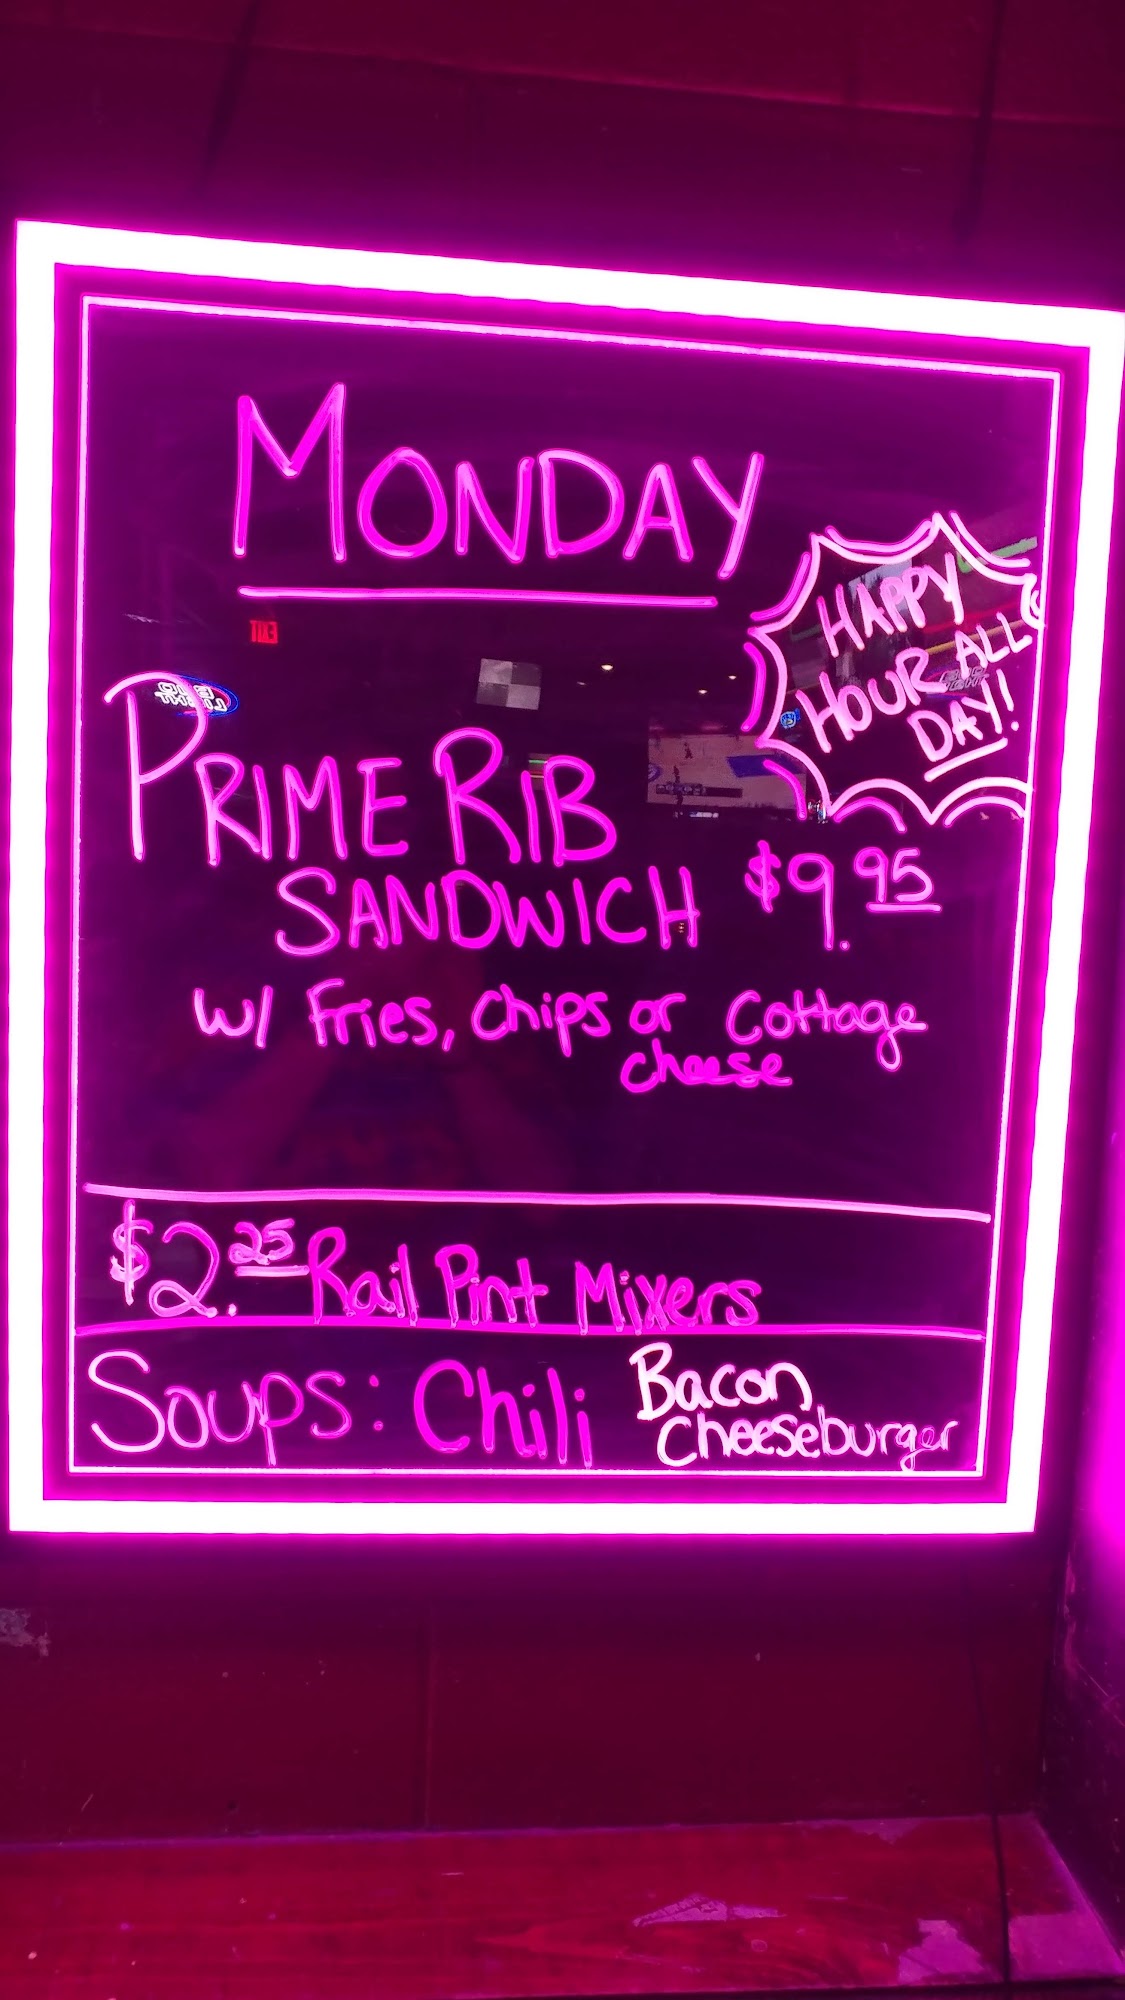 MONDAY
HAPPY
HOUR ALL
DAY!
EXIT
PRIME RIB
SANDWICH $9.95
w/ Fries, Chips or Cottage
cheese
$2.25 Rail Pint Mixers
Soups: Chili Bacon
Cheeseburger